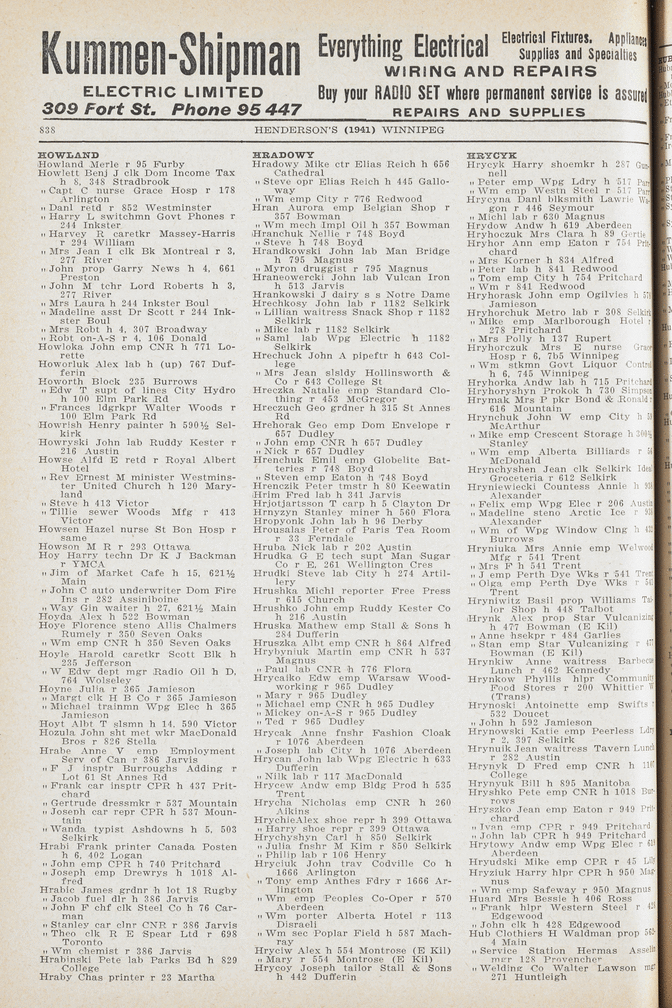 Kummen-Shipman
ELECTRIC LIMITED
309 Fort St. Phone 95 447
Everything Electrical
Electrical Fixtures, Appliances
Supplies and Specialties
WIRING AND REPAIRS
Buy your RADIO SET where permanent service is assured
REPAIRS AND SUPPLIES
838
HENDERSON'S (1941) WINNIPEG
HOWLAND
Howland Merle r 95 Furby
Howlett Benj J clk Dom Income Tax
h 8, 348 Stradbrook
" Capt C nurse Grace Hosp r 178
Arlington
" Danl retd r 852 Westminster
" Harry L switchmn Govt Phones r
244 Inkster
" Harvey R caretkr Massey-Harris
r 294 William
" Mrs Jean I clk Bk Montreal r 3,
277 River
" John prop Garry News h 4, 661
Preston
" John M tchr Lord Roberts h 3,
277 River
" Mrs Laura h 244 Inkster Boul
" Madeline asst Dr Scott r 244 Ink-
ster Boul
" Mrs Robt h 4, 307 Broadway
" Robt on-A-S r 4, 106 Donald
Howloka John emp CNR h 771 Lo-
rette
Howorluk Alex lab h (up) 767 Duf-
ferin
Howorth Block 235 Burrows
" Edw T supt of lines City Hydro
h 100 Elm Park Rd
" Frances ldgrkpr Walter Woods r
100 Elm Park Rd
Howrish Henry painter h 590½ Sel-
kirk
Howryski John lab Ruddy Kester r
216 Austin
Howse Alfd E retd r Royal Albert
Hotel
" Rev Ernest M minister Westmins-
ter United Church h 120 Mary-
land
" Steve h 413 Victor
" Tillie sewer Woods Mfg r 413
Victor
Howson Hazel nurse St Bon Hosp r
same
Howson M R r 293 Ottawa
Hoy Harry techn Dr K J Backman
r YMCA
" Jim of Market Cafe h 15, 621½
Main
" John C auto underwriter Dom Fire
Ins r 282 Assiniboine
" Way Gin waiter h 27, 621½ Main
Hoyda Alex h 522 Bowman
Hoye Florence steno Allis Chalmers
Rumely r 350 Seven Oaks
" Wm emp CNR h 350 Seven Oaks
Hoyle Harold caretkr Scott Blk h
235 Jefferson
" W Edw dept mgr Radio Oil h D,
764 Wolseley
Hoyne Julia r 365 Jamieson
" Margt clk H B Co r 365 Jamieson
" Michael trainmn Wpg Elec h 365
Jamieson
Hoyt Albt T slsmn h 14, 590 Victor
Hozula John sht met wkr MacDonald
Bros r 826 Stella
Hrabe Anne V emp Employment
Serv of Can r 386 Jarvis
" F J insptr Burroughs Adding r
Lot 61 St Annes Rd
" Frank car insptr CPR h 437 Prit-
chard
" Gertrude dressmkr r 537 Mountain
" Joseph car repr CPR h 537 Moun-
tain
" Wanda typist Ashdowns h 5, 503
Selkirk
Hrabi Frank printer Canada Posten
h 6, 402 Logan
" John emp CPR h 740 Pritchard
" Joseph emp Drewrys h 1018 Al-
fred
Hrabic James grdnr h lot 18 Rugby
" Jacob fuel dlr h 386 Jarvis
" John F chf clk Steel Co h 76 Car-
man
" Stanley car clnr CNR r 386 Jarvis
" Theo clk R E Spear Ltd r 698
Toronto
" Wm chemist r 386 Jarvis
Hrabinski Pete lab Parks Bd h 829
College
Hraby Chas printer r 23 Martha
HRADOWY
Hradowy Mike ctr Elias Reich h 656
Cathedral
" Steve opr Elias Reich h 445 Gallo-
way
" Wm emp City r 776 Redwood
Hran Aurora emp Belgian Shop r
357 Bowman
" Wm mech Impl Oil h 357 Bowman
Hranchuk Nellie r 748 Boyd
" Steve h 748 Boyd
Hrandkowski John lab Man Bridge
h 795 Magnus
" Myron druggist r 795 Magnus
Hraneowercki John lab Vulcan Iron
h 513 Jarvis
Hrankowski J dairy s s Notre Dame
Hrechkosy John lab r 1182 Selkirk
" Lillian waitress Snack Shop r 1182
Selkirk
" Mike lab r 1182 Selkirk
" Saml lab Wpg Electric h 1182
Selkirk
Hrechuck John A pipeftr h 643 Col-
lege
" Mrs Jean slsldy Hollinsworth &
Co r 643 College St
Hreczka Natalie emp Standard Clo-
thing r 453 McGregor
Hreczuch Geo grdner h 315 St Annes
Rd
Hrehorak Geo emp Dom Envelope r
657 Dudley
" John emp CNR h 657 Dudley
" Nick r 657 Dudley
Hrenchuk Emil emp Globelite Bat-
teries r 748 Boyd
" Steven emp Eaton h 748 Boyd
Hrenczik Peter tmstr h 80 Keewatin
Hrim Fred lab h 341 Jarvis
Hrjotjartsson T carp h 5 Clayton Dr
Hrnyzyn Stanley miner h 560 Flora
Hropyonk John lab h 96 Derby
Hrousalas Peter of Paris Tea Room
r 33 Ferndale
Hruba Nick lab r 202 Austin
Hrudka G E tech supt Man Sugar
Co r E, 261 Wellington Cres
Hrudki Steve lab City h 274 Artil-
lery
Hrushka Michl reporter Free Press
r 615 Church
Hrushko John emp Ruddy Kester Co
h 216 Austin
Hruska Mathew emp Stall & Sons h
284 Dufferin
Hruszka Albt emp CNR h 864 Alfred
Hrybyniuk Martin emp CNR h 537
Magnus
" Paul lab CNR h 776 Flora
Hrycaiko Edw emp Warsaw Wood-
working r 965 Dudley
" Mary r 965 Dudley
" Michael emp CNR h 965 Dudley
" Mickey on-A-S r 965 Dudley
" Ted r 965 Dudley
Hrycak Anne fnshr Fashion Cloak
r 1076 Aberdeen
" Joseph lab City h 1076 Aberdeen
Hrycan John lab Wpg Electric h 633
Dufferin
" Nilk lab r 117 MacDonald
Hrycew Andw emp Bldg Prod h 535
Trent
Hrycha Nicholas emp CNR h 260
Aikins
HrychieAlex shoe repr h 399 Ottawa
" Harry shoe repr r 399 Ottawa
Hrychyshyn Carl h 850 Selkirk
" Julia fnshr M Kim r 850 Selkirk
" Philip lab r 106 Henry
Hryciuk John trav Codville Co h
1666 Arlington
" Tony emp Anthes Fdry r 1666 Ar-
lington
" Wm emp Peoples Co-Oper r 570
Aberdeen
" Wm porter Alberta Hotel r 113
Disraeli
" Wm sec Poplar Field h 587 Mach-
ray
Hryciw Alex h 554 Montrose (E Kil)
" Mary r 554 Montrose (E Kil)
Hrycoy Joseph tailor Stall & Sons
h 442 Dufferin
HRYCYK
Hrycyk Harry shoemkr h 287 Gun-
nell
" Peter emp Wpg Ldry h 517 Parr
" Wm emp Westn Steel r 517 Parr
Hrycyna Danl blksmith Lawrie Wa-
gon r 446 Seymour
" Michl lab r 630 Magnus
Hrydow Andw h 619 Aberdeen
Hryhoczuk Mrs Clara h 89 Gertie
Hryhor Ann emp Eaton r 754 Prit-
chard
" Mrs Korner h 834 Alfred
" Peter lab h 841 Redwood
" Tom emp City h 754 Pritchard
" Wm r 841 Redwood
Hryhorask John emp Ogilvies h
Jamieson
Hryhorchuk Metro lab r 308 Selkirk
" Mike emp Marlborough Hotel r
278 Pritchard
" Mrs Polly h 137 Rupert
Hryhorczuk Mrs E nurse Grace
Hosp r 6, 7b5 Winnipeg
" Wm stkmn Govt Liquor Control
h 6, 745 Winnipeg
Hryhorka Andw lab h 715 Pritchard
Hryhoryshyn Prokok h 730 Simpson
Hrymak Mrs P pkr Bond & Ronald r
616 Mountain
Hrynchuk John W emp City h
McArthur
" Mike emp Crescent Storage h
Stanley
" Wm emp Alberta Billiards r
McDonald
Hrynchyshen Jean clk Selkirk Ideal
Groceteria r 612 Selkirk
Hryniewiecki Countess Annie h
Alexander
" Felix emp Wpg Elec r 206 Austin
" Madeline steno Arctic Ice r
Alexander
" Wm of Wpg Window Clng h
Burrows
Hryniuka Mrs Annie emp Welwood
Mfg r 541 Trent
" Mrs F h 541 Trent
" J emp Perth Dye Wks r 541 Trent
" Olga emp Perth Dye Wks r
Trent
Hryniwitz Basil prop Williams Tai-
lor Shop h 448 Talbot
Hrynk Alex prop Star Vulcanizing
h 477 Bowman (E Kil)
" Anne hsekpr r 484 Garlies
" Stan emp Star Vulcanizing r
Bowman (E Kil)
Hrynkiw Anne waitress Barbecue
Lunch r 462 Kennedy
Hrynkow Phyllis hlpr Community
Food Stores r 200 Whittier W
(Trans)
Hrynoski Antoinette emp Swifts r
532 Doucet
" John h 592 Jamieson
Hrynowski Katie emp Peerless Ldry
r 2, 397 Selkirk
Hrynuik Jean waitress Tavern Lunch
r 282 Austin
Hrynyk D Fred emp CNR h
College
Hrynyuk Bill h 895 Manitoba
Hryshko Pete emp CNR h 1018 Bur-
rows
Hryszko Jean emp Eaton r 949 Prit-
chard
" Ivan emp CPR r 949 Pritchard
" John lab CPR h 949 Pritchard
Hrytowy Andw emp Wpg Elec r
Aberdeen
Hryudski Mike emp CPR r 45 Lily
Hryziuk Harry hlpr CPR h 950 Mag-
nus
" Wm emp Safeway r 950 Magnus
Huard Mrs Bessie h 406 Ross
" Frank hlpr Western Steel r
Edgewood
" John clk h 428 Edgewood
Hub Clothiers H Waldman prop
4 Main
" Service Station Hermas Asselin
mgr 128 Provencher
" Welding Co Walter Lawson mgr
271 Huntleigh